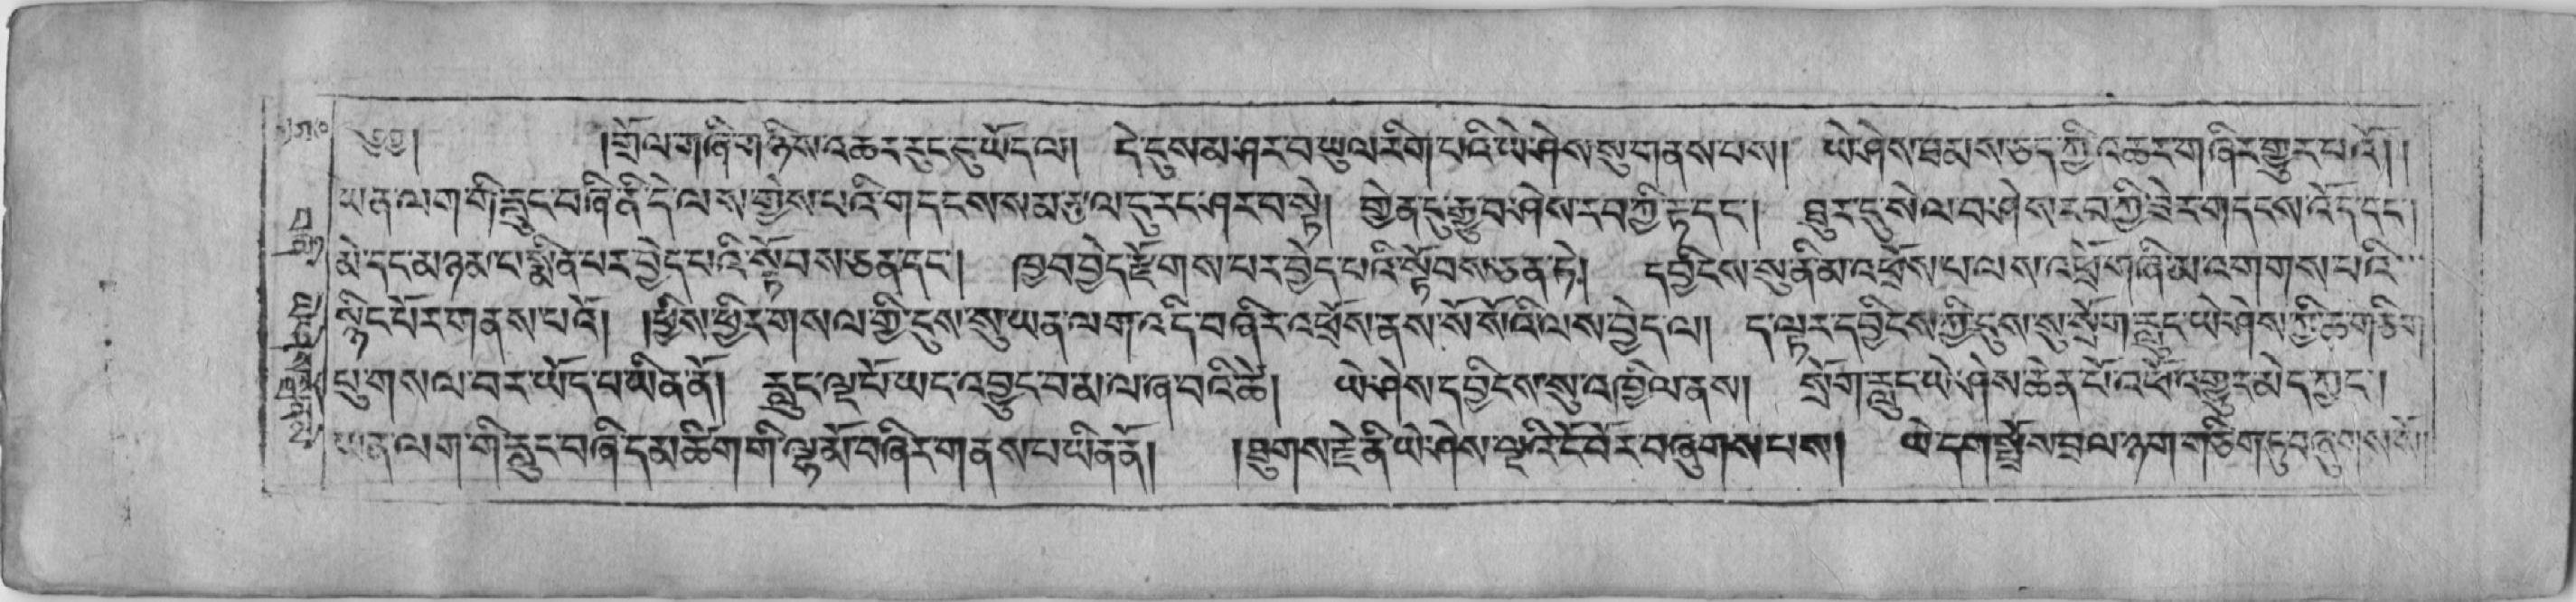 ༄༅། །གྲོལ་གཞི་གཉིས་འཆར་རུང་དུ་ཡོད་ལ། དེ་དུས་མ་ཤར་བ་ཡུལ་རིག་པའི་ཡེ་ཤེས་སུ་གནས་པས། ཡེ་ཤེས་ཐམས་ཅད་ཀྱི་འཆར་གཞིར་གྱུར་པའོ། །
ཡན་ལག་གི་རླུང་བཞི་ནི་དེ་ལས་གྱེས་པའི་གདངས་ས་མ་ཏུ་ལ་དུ་རང་ཤར་བ་སྟེ། གྱེན་དུ་རྒྱུ་བ་ཤེས་རབ་ཀྱི་རྟ་དང་། ཐུར་དུ་སེལ་བ་ཤེས་རབ་ཀྱི་ཟེར་གདངས་འོད་དང་།
མེ་དང་མཉམ་པ་སྨིན་པར་བྱེད་པའི་སྟོབས་ཅན་དང་། ཁྱབ་བྱེད་རྫོགས་པར་བྱེད་པའི་སྟོབས་ཅན་ཏེ། དབྱིངས་སུ་ནི་མ་འཕྲོས་པ་ལས་འཕྲོ་གཞི་མ་འགགས་པའི་
སྙིང་པོར་གནས་པའོ། །ཕྱིས་ཕྱིར་གསལ་གྱི་དུས་སུ་ཡན་ལག་འདི་བཞིར་འཕྲོས་ནས་སོ་སོའི་ལས་བྱེད་ལ། ད་ལྟར་དབྱིངས་ཀྱི་དུས་སུ་སྲོག་རླུང་ཡེ་ཤེས་ཀྱི་ཆ་གཅིག
པུ་གསལ་བར་ཡོད་པ་ཡིན་ནོ། རླུང་ལྔ་པོ་ཡང་འབྱུང་བ་མ་ལ་ཞ་བའི་ཚེ། ཡེ་ཤེས་དབྱིངས་སུ་འཁྱིལ་ནས། སྲོག་རླུང་ཡེ་ཤེས་ཆེན་པོ་འཕོ་འགྱུར་མེད་ཀྱང་།
ཡན་ལག་གི་རླུང་བཞི་དམ་ཚིག་གི་ལྷ་མོ་བཞིར་གནས་པ་ཡིན་ནོ། །ཐུགས་རྗེ་ནི་ཡེ་ཤེས་ལྔའི་ངོ་བོར་བཞུགས་པས། ཡེ་དག་སྤྲོས་བྲལ་ཉག་གཅིག་ཏུ་བཞུགས་སོ།